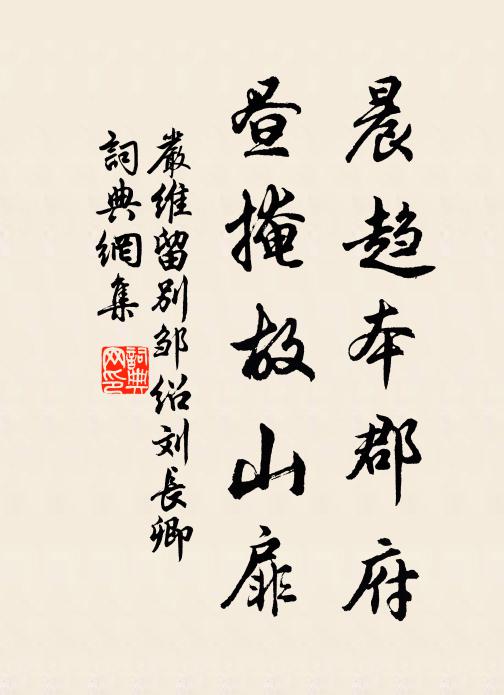 晨趋本郡府
昼掩故山扉
嚴维留别邹绍刘長卿
詞典網集
詞典网印